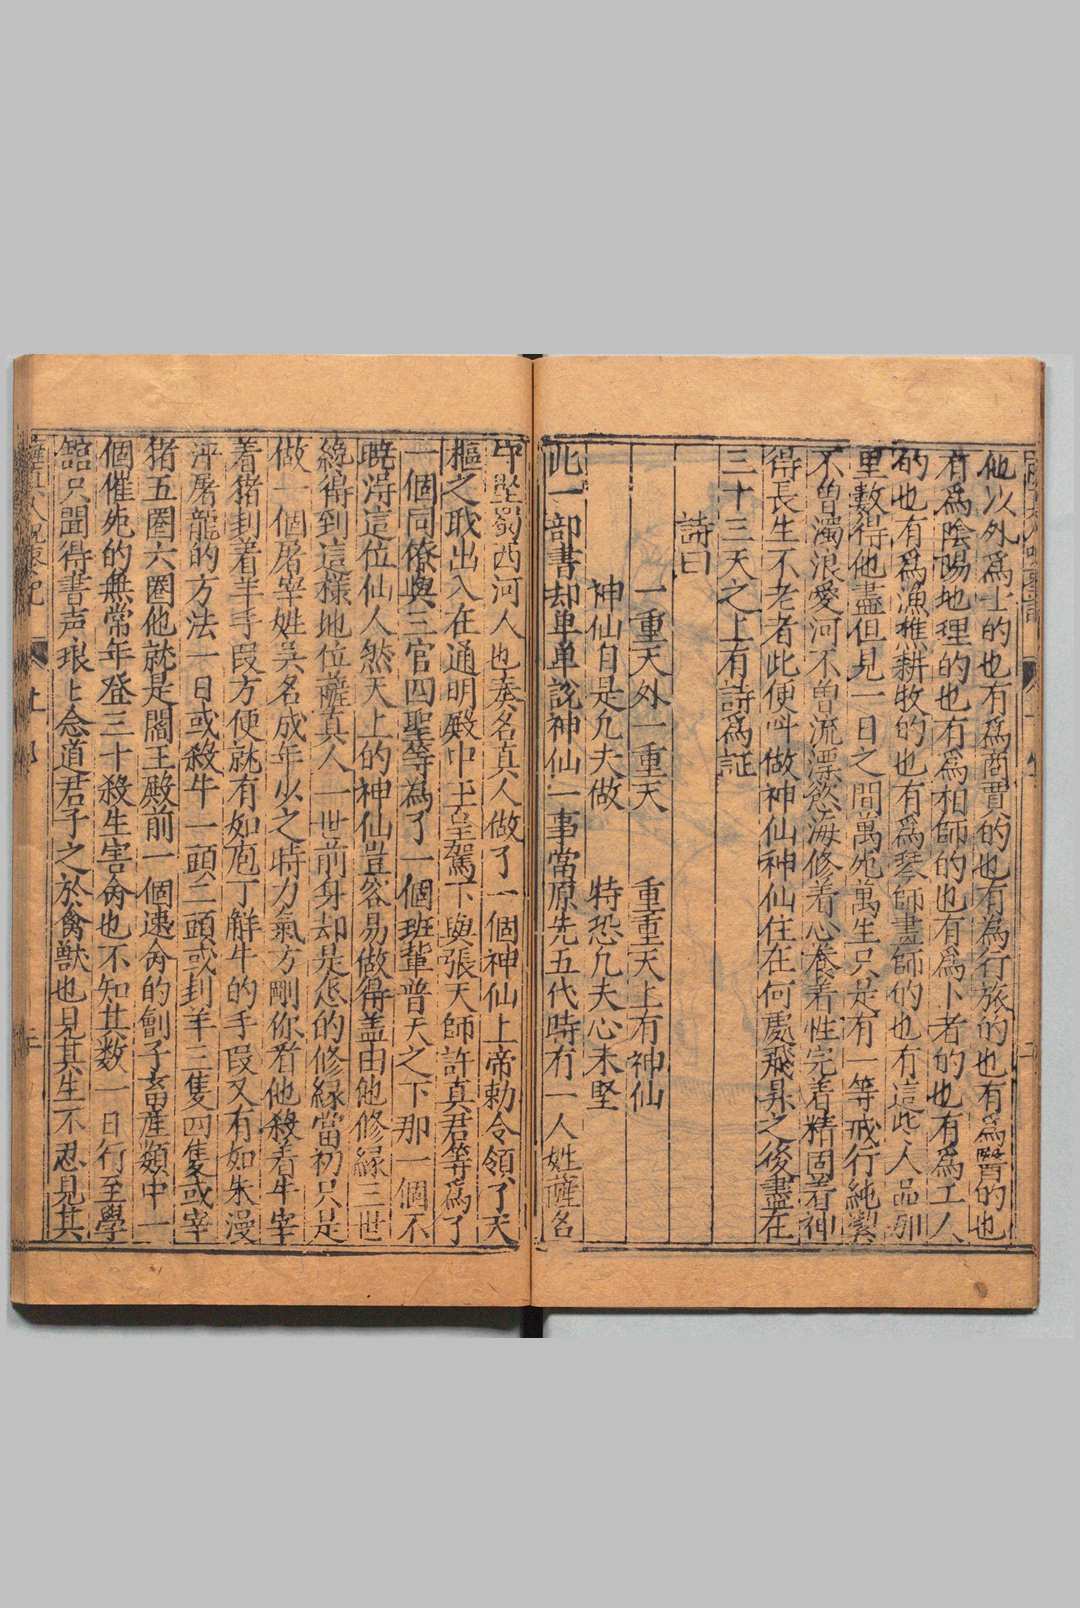 他以外爲士的也有爲商賈的也有為行旅的也有爲醫的也
有爲陰陽地理的也有爲相師的也有爲卜者的也有為工人
的也有爲漁樵耕牧的也有爲琴師畫師的也有這些人品那
里數得他盡但見一日之間萬死萬生只是有一等戒行純潔
不曽濁浪愛河不曽流漂慾海修着心養着性完着精固着神
得長生不老者此便呌做神仙神仙住在何處飛昇之後盡在
三十三天之上有詩為証
詩曰
一重天外一重天 重重天上有神仙
神仙自是凡夫做 特恐凡夫心未堅
此一部書却单单說神仙一事當原先五代時有一人姓薩名
守堅蜀西河人也奏名真人做了一個神仙上帝勅令領了天
樞之職出入在通明殿中玉皇駕下與張天師許真君等爲了
一個同僚與三官四聖等為了一個班輩普天之下那一個不
曉淂這位仙人然天上的神仙豈容易做得盖由他修緣三世
纔得到這様地位薩真人一世前身却是怎的修緣當初只是
做一個屠宰姓吳名成年少之時力氣方剛你看他殺着牛宰
着猪刲着羊手叚方便就有如庖丁觧牛的手叚又有如朱漫
泙屠龍的方法一日或殺牛一頭二頭或刲羊三隻四隻或宰
猪五圈六圈他就是閻王殿前一個逓命的劊子畜産類中一
個催死的無常年登三十殺生害命也不知其数一日行至學
舘只聞得書声琅上念道君子之於禽獸也見其生不忍見其